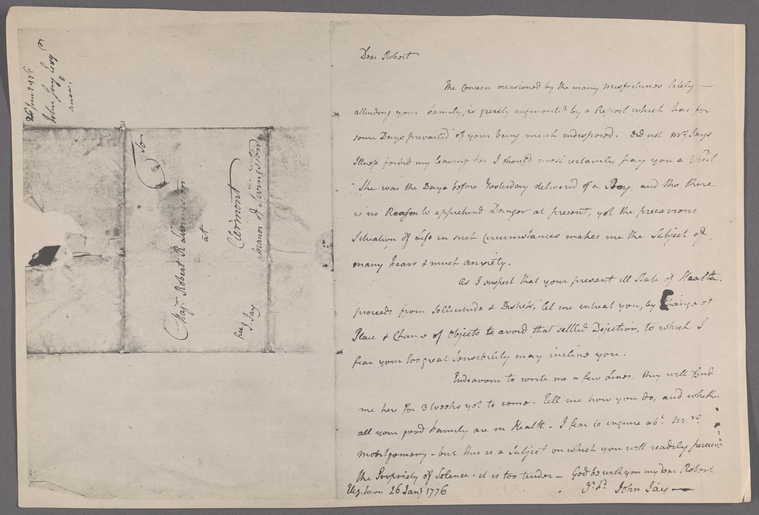 26 Jany 1776
John Jay Esqr
answ.
To
Chanr Robert R Livingston
at
Clermont
Manor of Livingston
free
J. Jay
Dear Robert
The Concern occasioned by the many Misfortunes lately
attending your Family, is greatly augmented by a Report which has for
some Days prevailed of your being much indisposed. Did not Mrs. Jays
Illness forbid my leaving her I should most certainly pay you a Visit.
She was the Day before Yesterday delivered of a Boy, and tho there
is no Reason to apprehend Danger at present, yet the precarious
Situation of Life in such Circumstances makes me the Subject of
many Fears & much anxiety.
As I suspect that your present ill State of Health
proceeds from Sollicitude & Distress, let me entreat you, by Change of
Place & Change of Objects to avoid that settled Dejection, to which I
fear your too great Sensibility may incline you.
Endeavour to write me a few Lines. they will find
me here for 3 Weeks yet to come. Tell me how you do, and whether
all your good Family are in Health - I fear to enquire abt. Mrs.
Montgomery - but this is a Subject on which you will readily percieve
the Propriety of Silence - it is too tender - God be with you my dear Robert
Eliz. Town 26 Jany 1776
John Jay